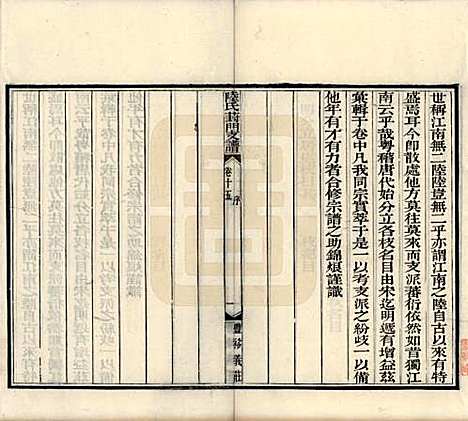 世稱江南無二陸陸豈無二乎亦謂江南之陸自古以來有特
盛焉耳今即散處他方莫往莫來而支派蕃衍依然如昔獨江
南云乎哉粵稽唐代始分立各枝名目由宋迄明遞有增益茲
彙輯于卷中凡我同宗實萃于是一以考支派之紛歧一以備
他年有才有力者合修宗譜之助錦烺謹識
陸氏葑門支譜
卷十五
序
一
豐裕義莊